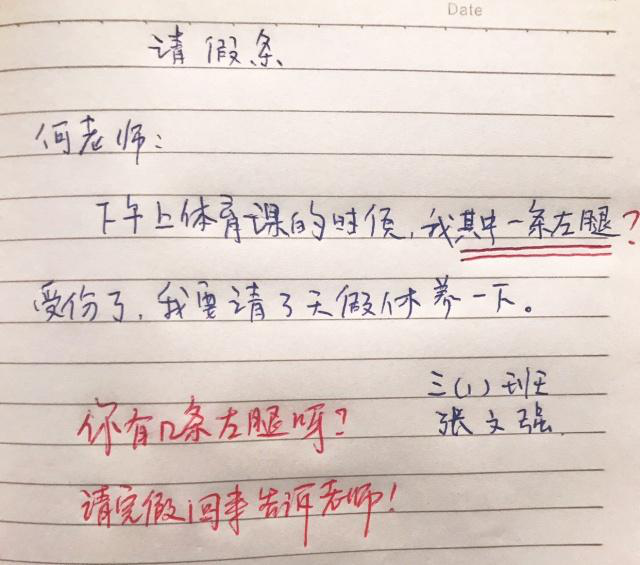 Date
请假条
何老师：
下午上体育课的时侯，我其中一条左腿？
受伤了，我要请3天假休养一下。
三（1）班
张文强
你有几条左腿呀？
请完假回来告诉老师！